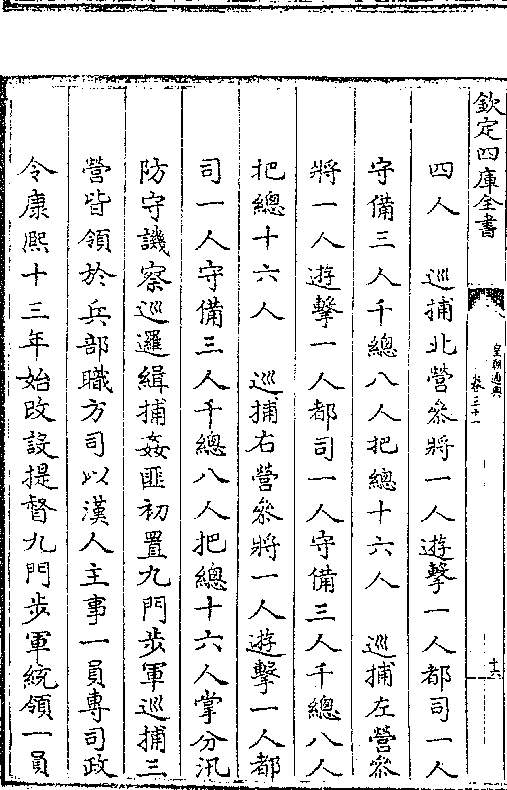 欽定四庫全書
皇朝通典
卷三十一
十六
四人　巡捕北營叅將一人遊擊一人都司一人
守備三人千總八人把總十六人　巡捕左營叅
將一人遊擊一人都司一人守備三人千總八人
把總十六人　巡捕右營叅將一人遊擊一人都
司一人守備三人千總八人把總十六人掌分汛
防守譏察巡邏緝捕姦匪初置九門步軍巡捕三
營皆領於兵部職方司以漢人主事一員專司政
令康熙十三年始改設提督九門步軍統領一員